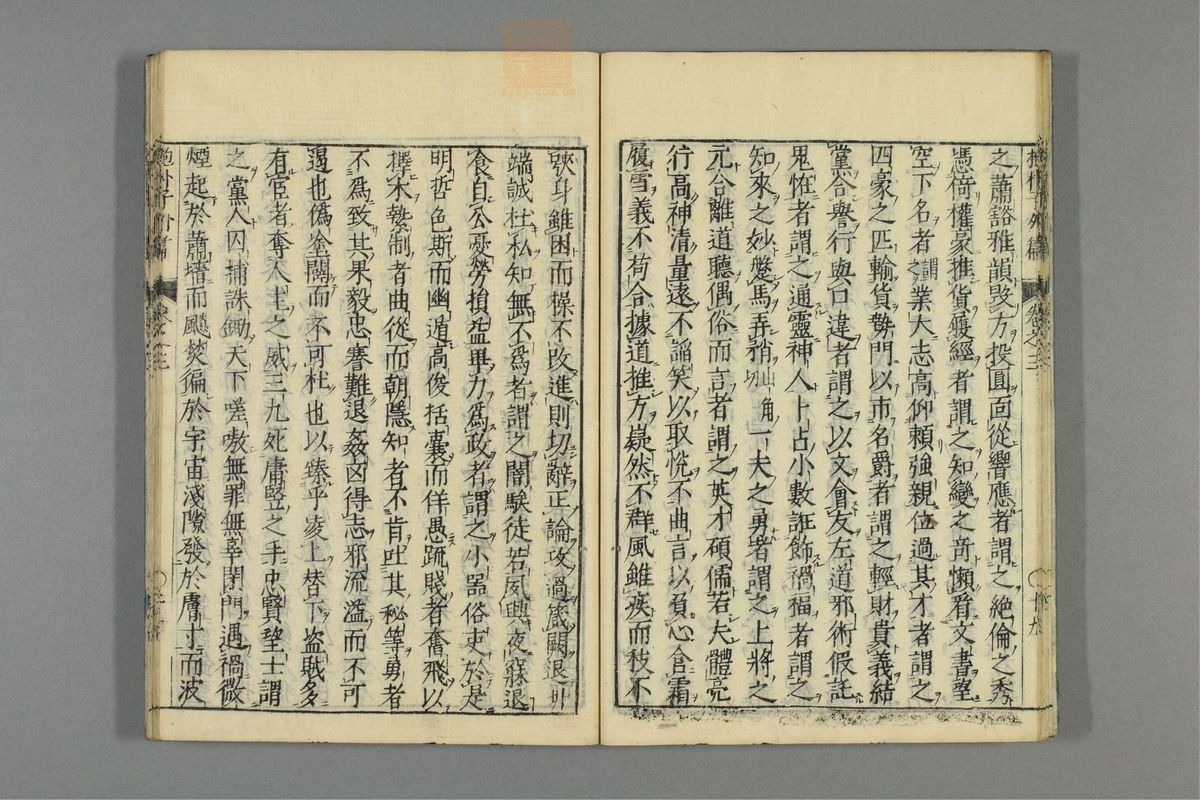 之蕭豁雅韻毁方投圓面從響應者謂之絶倫之秀
憑倚權豪推貨履徑者謂之知變之竒懶看文書望
空下名者謂之業大志高仰賴強親位過其才者謂之
四豪之匹輸貨勢門以市名爵者謂之輕財貴義結
黨合譽行與口違者謂之以文會友左道邪術假託
鬼怪者謂之通靈神人卜占小數誑飾禍福者謂之
知來之妙躄馬弄矟一夫之勇者謂之上將之
元合離道聽偶俗而言者謂之英才碩儒若夫體亮
行高神清量遠不謟笑以取恱不曲言以負心含霜
履雪義不苟合據道推方嶷然不群風雖疾而枝不
身雖困而操不改進則切辭正論攻過箴闕退
端誠杜私知無不爲者謂之闇騃徒苦夙興夜寐退
食自公憂勞損益畢力爲政者謂之小器俗吏於是
明哲色斯而幽遁高俊括囊而佯愚疏賤者奮飛以
擇木縶制者曲從而朝隱知者不肯吐其秘等勇者
不爲致其果毅忠謇離退姦凶得志邪流溢而不可
遏也僞塗闢而不可杜也以臻乎凌上替下盜賊多
有宦者奪人主之威三九死庸竪之手忠賢望士謂
之黨人囚捕誅鋤天下嗟嗷無罪無辜閉門遇禍微
煙起於蕭牆而飈焚徧於宇宙淺隙發於膚寸而波
抱朴子外篇 卷之三